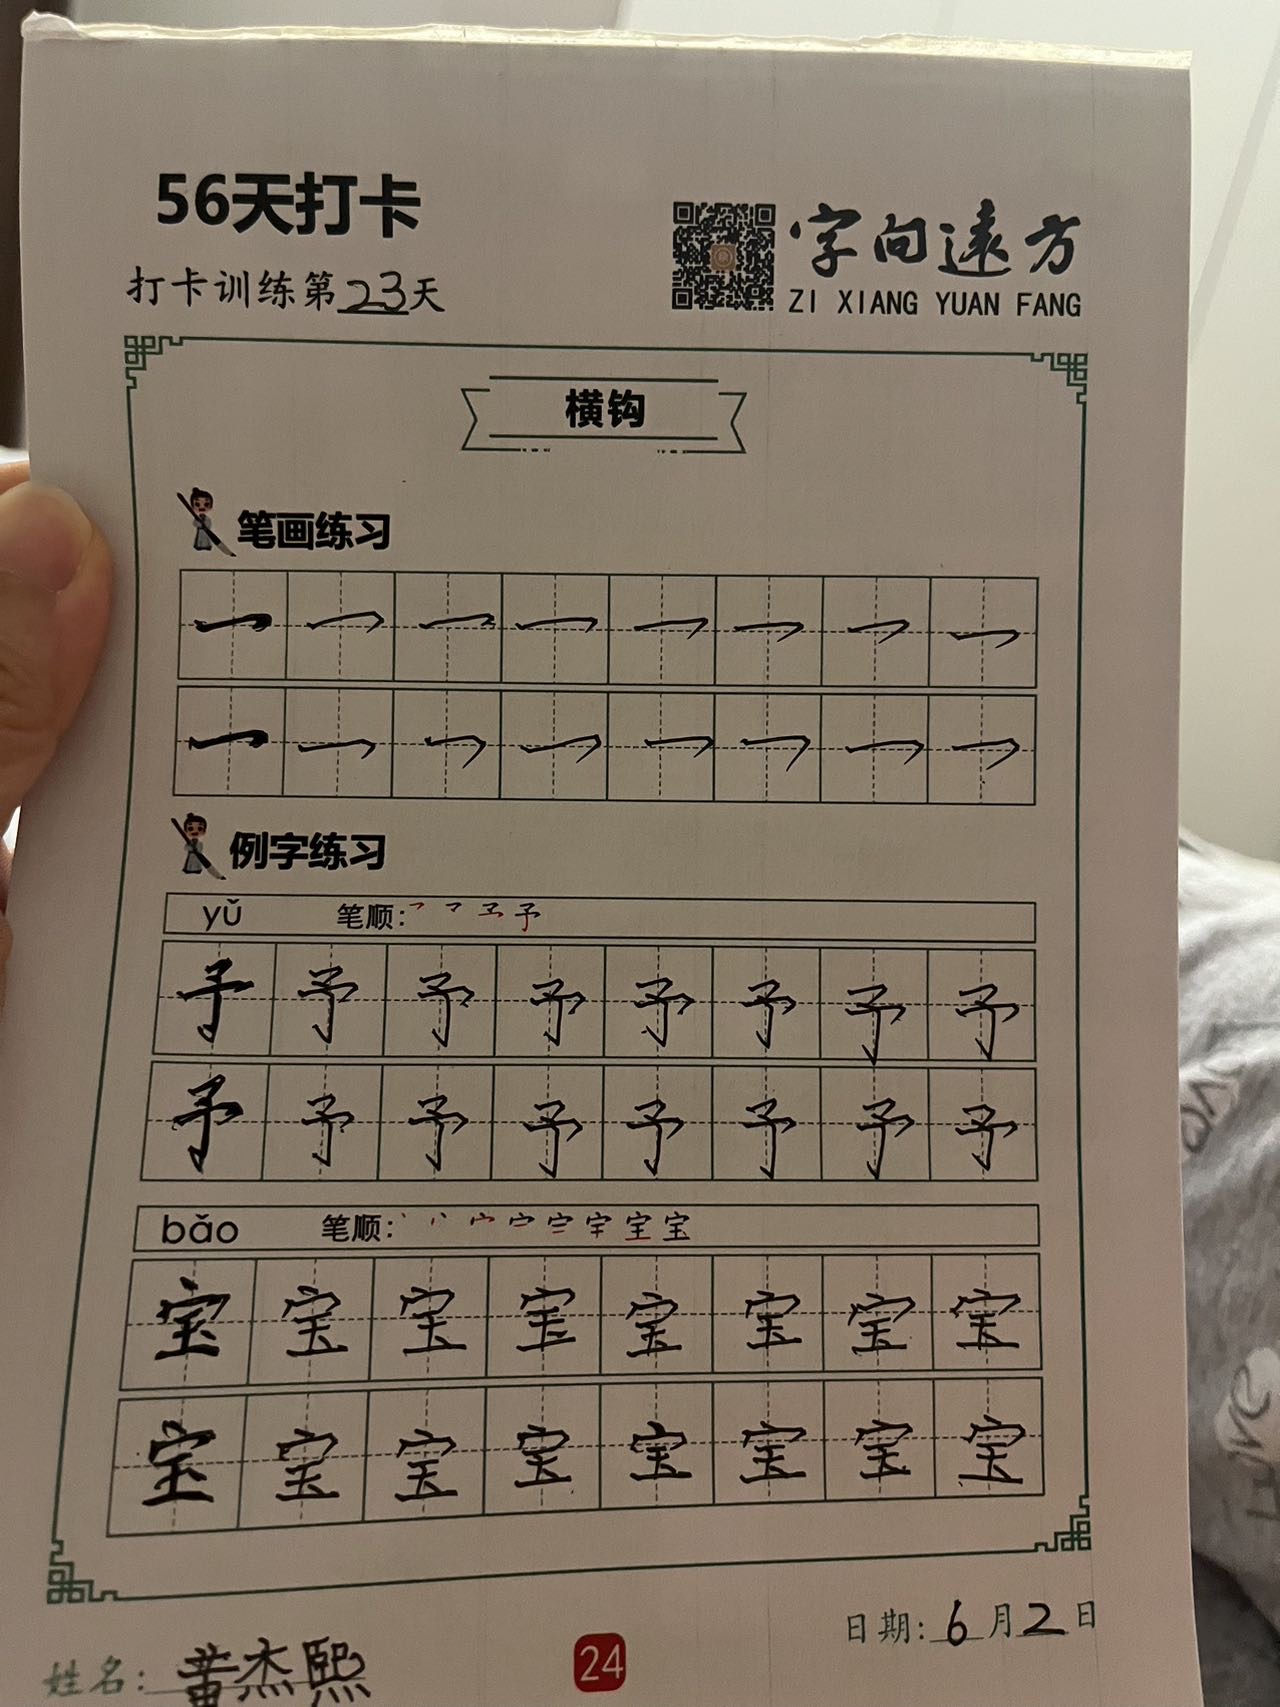 56天打卡
字向遠方
ZI XIANG YUAN FANG
打卡训练第23天
横钩
笔画练习
例字练习
yǔ 笔顺:
予予予予予予予予
予予予予予予予予
bǎo 笔顺:
宝宝宝宝宝宝宝宝
宝宝宝宝宝宝宝宝
日期:6月2日
姓名:黄杰熙
24